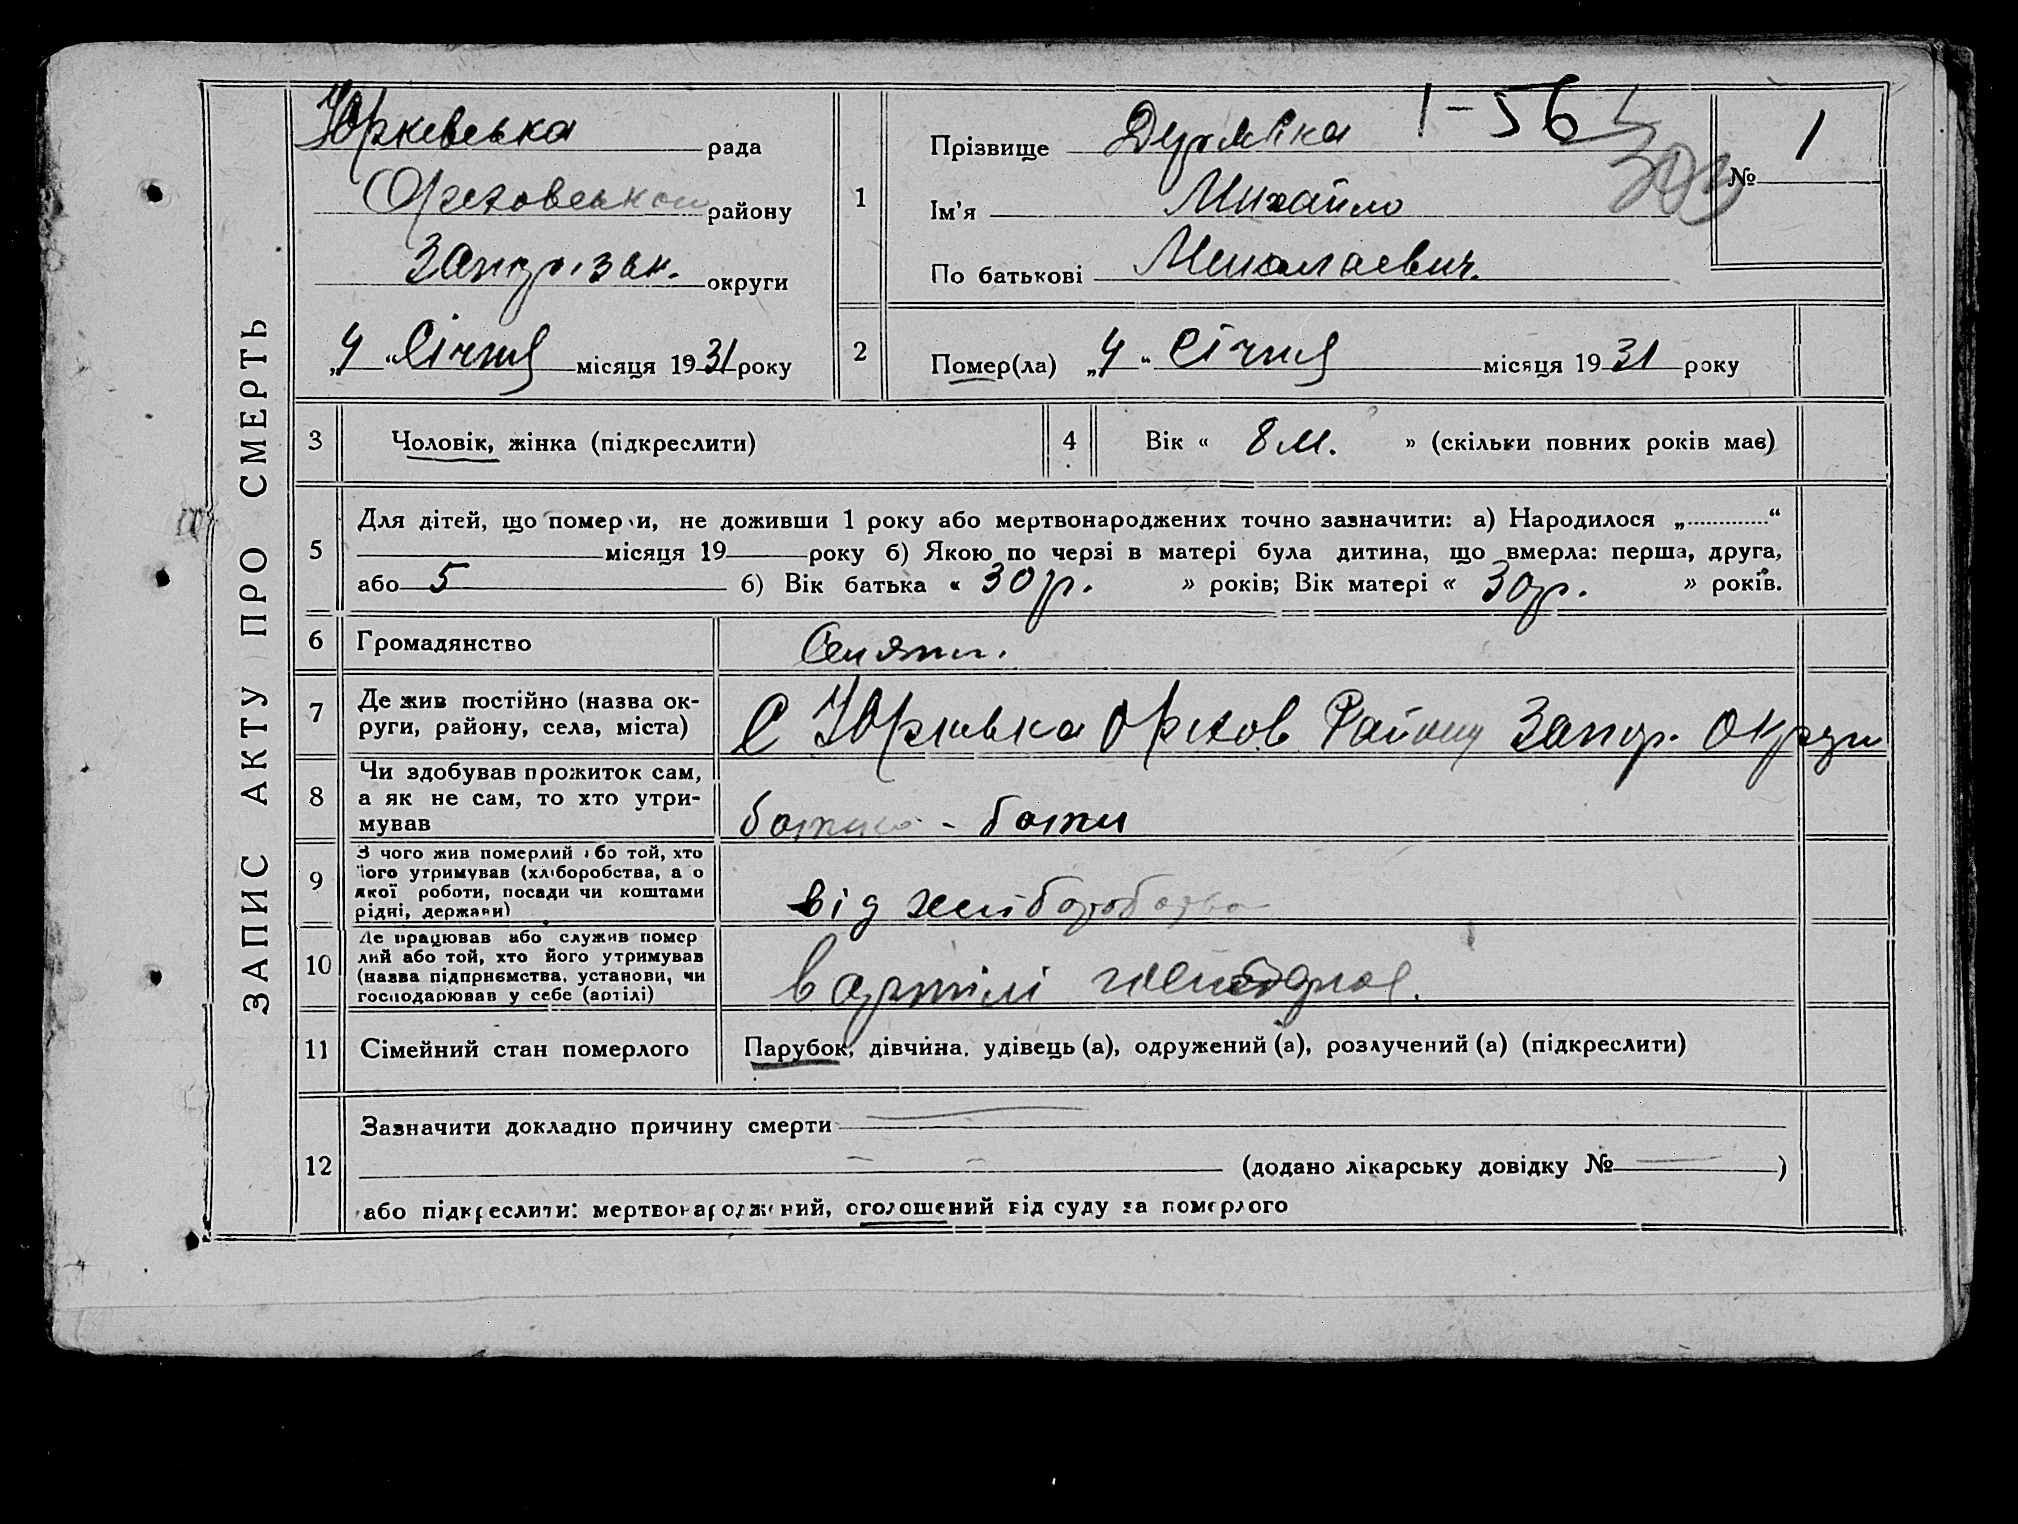 ЗАПИС АКТУ ПРО СМЕРТЬ
Юркевська рада
Ореховської району
Запорізьк. округи
„4" Січня місяця 1931 року
1
Прізвище
1-56
Ім'я Михайло
По батькові Миколаевич.
№ 1
2
Помер(ла) „4" Січня місяця 1931 року
3 Чоловік, жінка (підкреслити)
4 Вік « 8 м. » (скільки повних років має)
5
Для дітей, що померли, не доживши 1 року або мертвонароджених точно зазначити: а) Народилося „............"
місяця 19 року б) Якою по черзі в матері була дитина, що вмерла: перша, друга,
або 5 б) Вік батька « 30 р. » років; Вік матері « 30 р. » років.
6 Громадянство Селянин.
7 Де жив постійно (назва ок-
руги, району, села, міста)
С Юрківка Орехов Району Запор. Округи
8 Чи здобував прожиток сам,
а як не сам, то хто утри-
мував
9 З чого жив померлий або той, хто
його утримував (хліборобства, а о
якої роботи, посади чи коштами
рідні, держави)
від хлиборобства
10 Де працював або служив помер
лий або той, хто його утримував
(назва підприємства, установи, чи
господарював у себе (артілі)
в артілі
11 Сімейний стан померлого Парубок, дівчина, удівець (а), одружений (а), розлучений (а) (підкреслити)
12
Зазначити докладно причину смерти
(додано лікарську довідку № )
або підкреслити: мертвонароджений, оголошений від суду за померлого